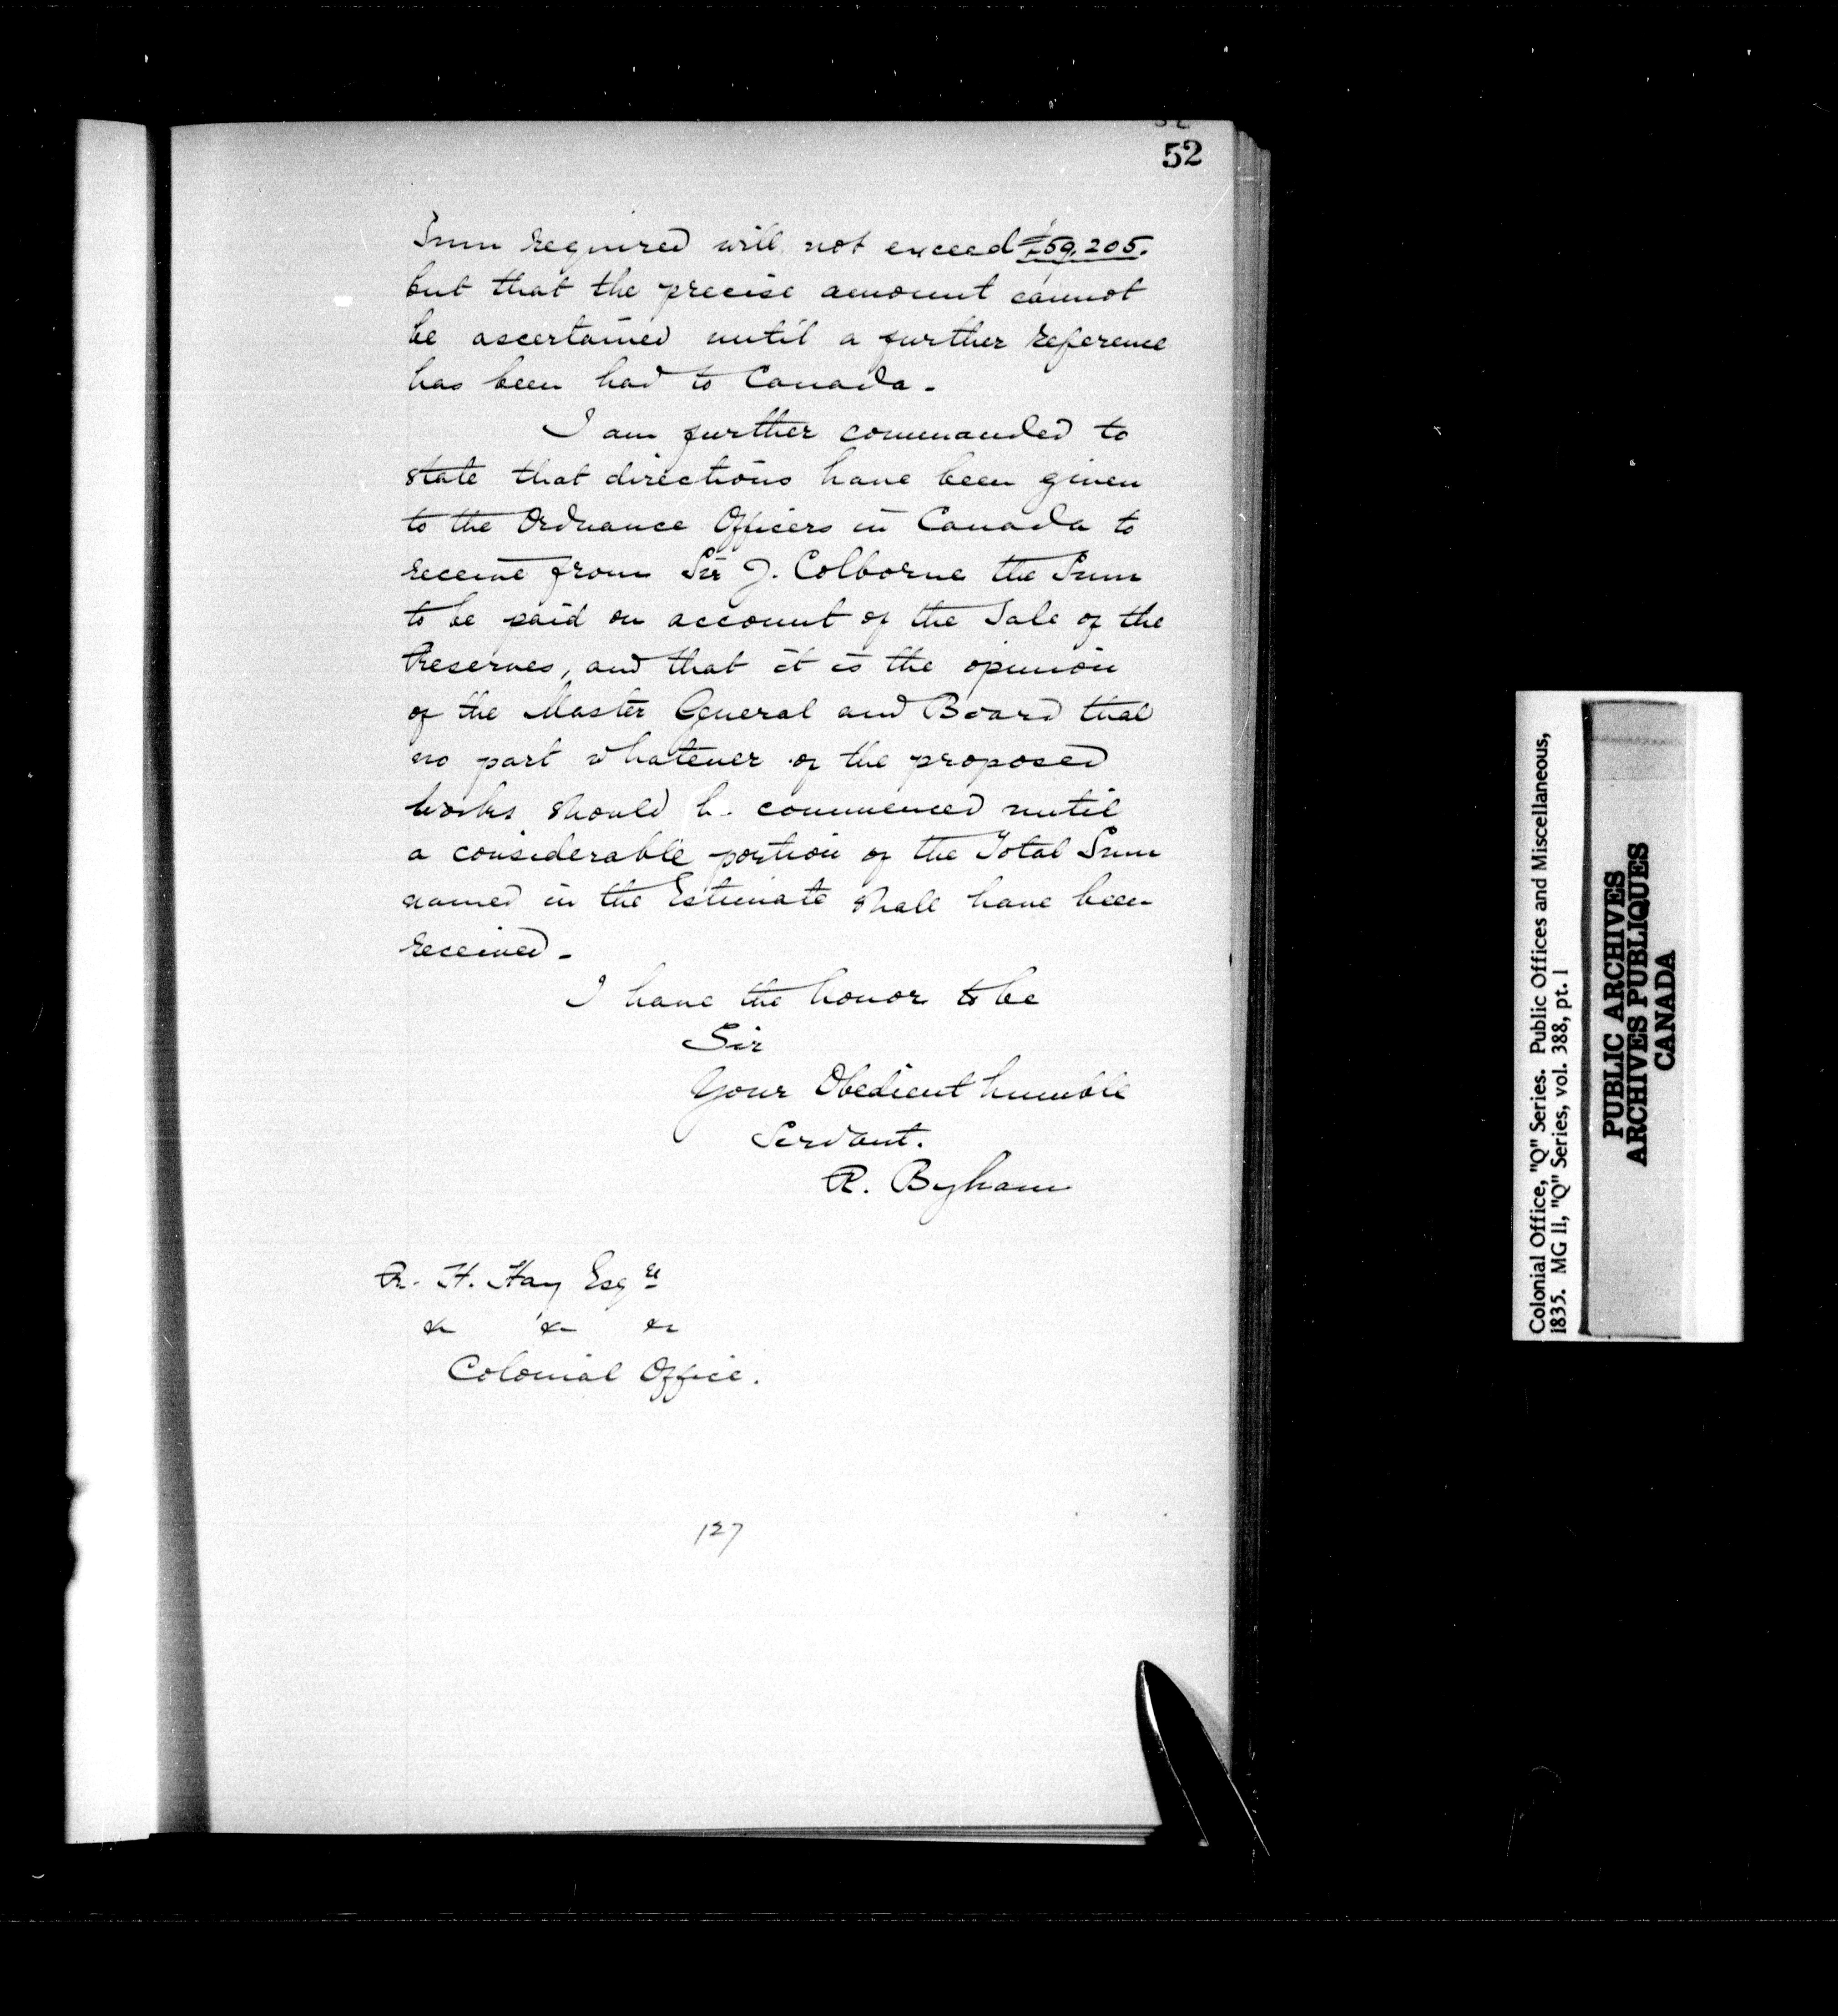 52
Sum required will not exceed £59,205.
but that the precise amount cannot
be ascertained until a further reference
has been had to Canada.
I am further commanded to
state that directions have been given
to the Ordnance Officers in Canada to
receive from Sir J. Colborne the Sum
to be paid on account of the Sale of the
Reserves, and that it is the opinion
of the Master General and Board that
no part whatever of the proposed
works should be commenced until
a considerable portion of the Total Sum
named in the Estimate shall have been
received.
I have the honor to be
Sir
Your Obedient humble
Servant.
R. Byham
R. H. Hay Esqre
&c &c &c
Colonial Office.
127
Colonial Office, "Q" Series. Public Offices and Miscellaneous,
1835. MG 11, "Q" Series, vol. 388, pt. 1
PUBLIC ARCHIVES
ARCHIVES PUBLIQUES
CANADA